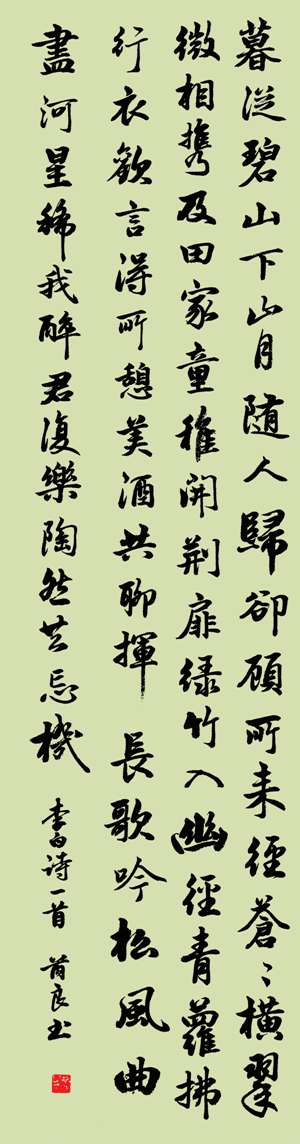 暮從碧山下山月随人歸卻顾所来徑蒼〻橫翠
微相携及田家童稚開荆扉緑竹入幽徑青蘿拂
行衣歡言得所憩美酒共聊揮長歌吟松風曲
盡河星稀我醉君復樂陶然共忘機
李白诗一首 良书